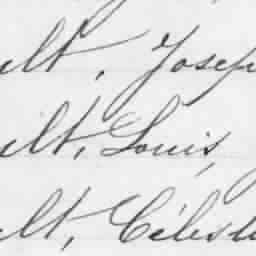 ilt, Joseph
ilt, Louis,
ilt, Célest